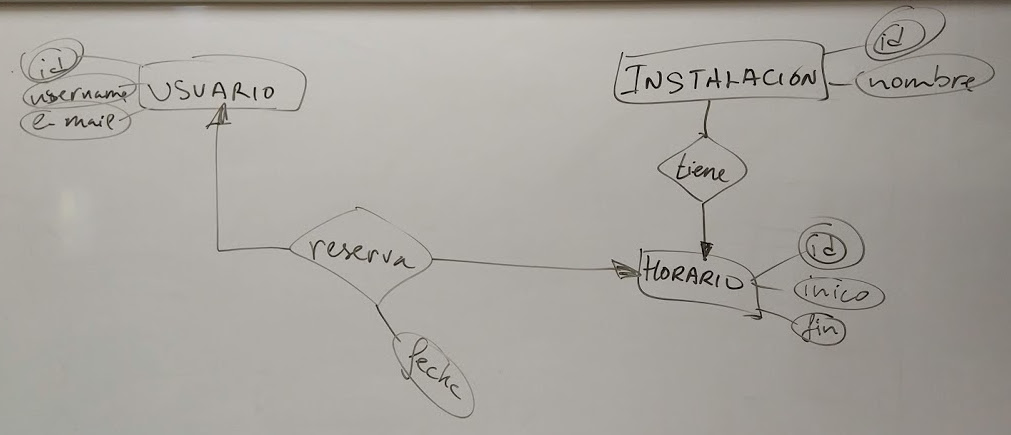 id
username
e-mail
USUARIO
INSTALACIÓN
id
nombre
tiene
reserva
fecha
HORARIO
id
inico
fin